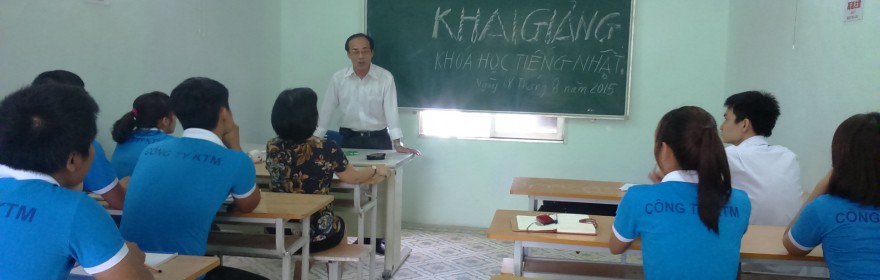 KHAI GIẢNG
KHÓA HỌC TIẾNG NHẬT
Ngày 18 Tháng 8 năm 2015
CÔNG TY KTM
CÔNG TY KTM
KTM
CÔNG